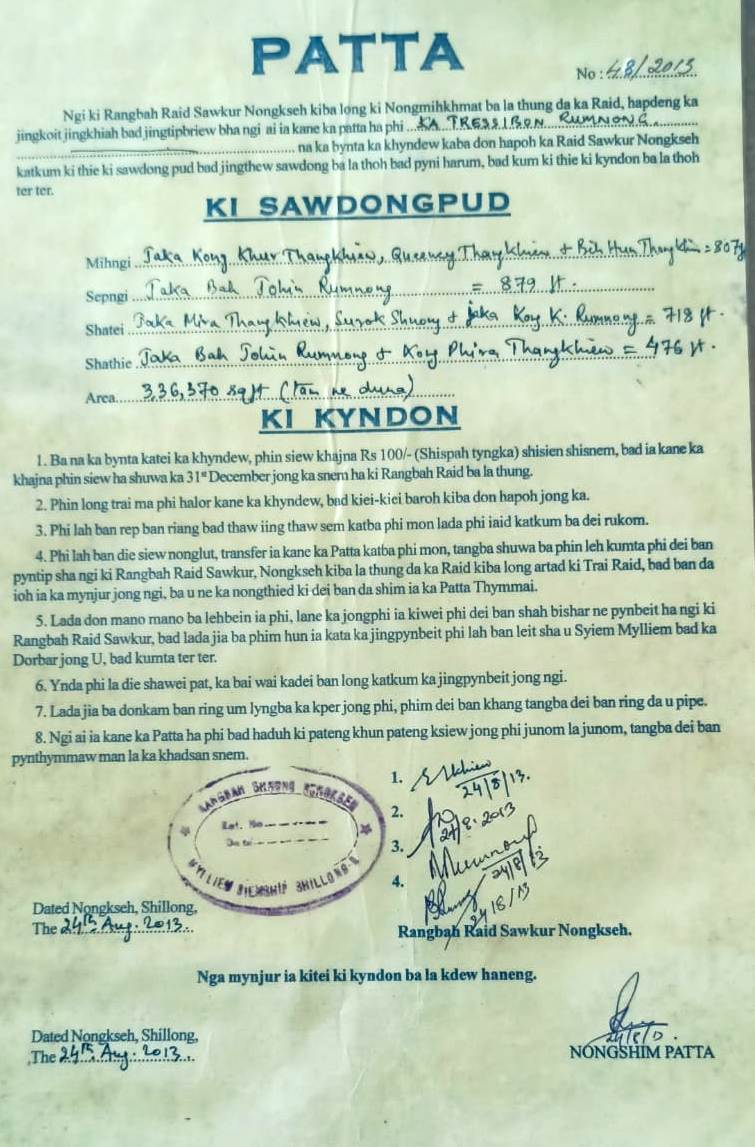 PATTA
No : 48/2013
Ngi ki Rangbah Raid Sawkur Nongkseh kiba long ki Nongmihkhmat ba la thung da ka Raid, hapdeng ka
jingkoit jingkhiah bad jingtipbriew bha ngi ai ia kane ka patta ha phi ...KA TRESSIBON RUMNONG
na ka bynta ka khyndew kaba don hapoh ka Raid Sawkur Nongkseh
katkum ki thie ki sawdong pud bad jingthew sawdong ba la thoh bad pyni harum, bad kum ki thie ki kyndon ba la thoh
ter ter.
KI SAWDONGPUD
Mihngi Jaka Kong Khur Thangkhiew, Queency Thangkhiew + Bih Hun Thangkhiew = 807
Sepngi Jaka Bah Johin Rumnong = 879 ft.
Shatei Jaka Mira Thangkhiew, Surok Shnong + jaka Kong K. Rumnong = 718 ft.
Shathie Jaka Bah Johin Rumnong + Kong Phira Thangkhiew = 476 ft.
Area 3,36,370 sqft (tam ne duna)
KI KYNDON
1. Ba na ka bynta katei ka khyndew, phin siew khajna Rs 100/- (Shispah tyngka) shisien shisnem, bad ia kane ka
khajna phin siew ha shuwa ka 31st December jong ka snem ha ki Rangbah Raid ba la thung.
2. Phin long trai ma phi halor kane ka khyndew, bad kiei-kiei baroh kiba don hapoh jong ka.
3. Phi lah ban rep ban riang bad thaw iing thaw sem katba phi mon lada phi iaid katkum ba dei rukom.
4. Phi lah ban die siew nonglut, transfer ia kane ka Patta katba phi mon, tangba shuwa ba phin leh kumta phi dei ban
pyntip sha ngi ki Rangbah Raid Sawkur, Nongkseh kiba la thung da ka Raid kiba long artad ki Trai Raid, bad ban da
ioh ia ka mynjur jong ngi, ba u ne ka nongthied ki dei ban da shim ia ka Patta Thymmai.
5. Lada don mano mano ba lehbein ia phi, lane ka jongphi ia kiwei phi dei ban shah bishar ne pynbeit ha ngi ki
Rangbah Raid Sawkur, bad lada jia ba phim hun ia kata ka jingpynbeit phi lah ban leit sha u Syiem Mylliem bad ka
Dorbar jong U, bad kumta ter ter.
6. Ynda phi la die shawei pat, ka bai wai kadei ban long katkum ka jingpynbeit jong ngi.
7. Lada jia ba donkam ban ring um lyngba ka kper jong phi, phim dei ban khang tangba dei ban ring da u pipe.
8. Ngi ai ia kane ka Patta ha phi bad haduh ki pateng khun pateng ksiew jong phi junom la junom, tangba dei ban
pynthymmaw man la ka khadsan snem.
RANGBAH SHNONG NONGKSEH
Ref. No
Date
MYLLIEM SIEMSHIP SHILLONG-
1. 24/8/13.
2. 24/8.2013
3. 24/8/13
4. 24/8/13
Dated Nongkseh, Shillong,
The 24th Aug. 2013
Rangbah Raid Sawkur Nongkseh.
Nga mynjur ia kitei ki kyndon ba la kdew haneng.
Dated Nongkseh, Shillong,
The 24th Aug. 2013
NONGSHIM PATTA